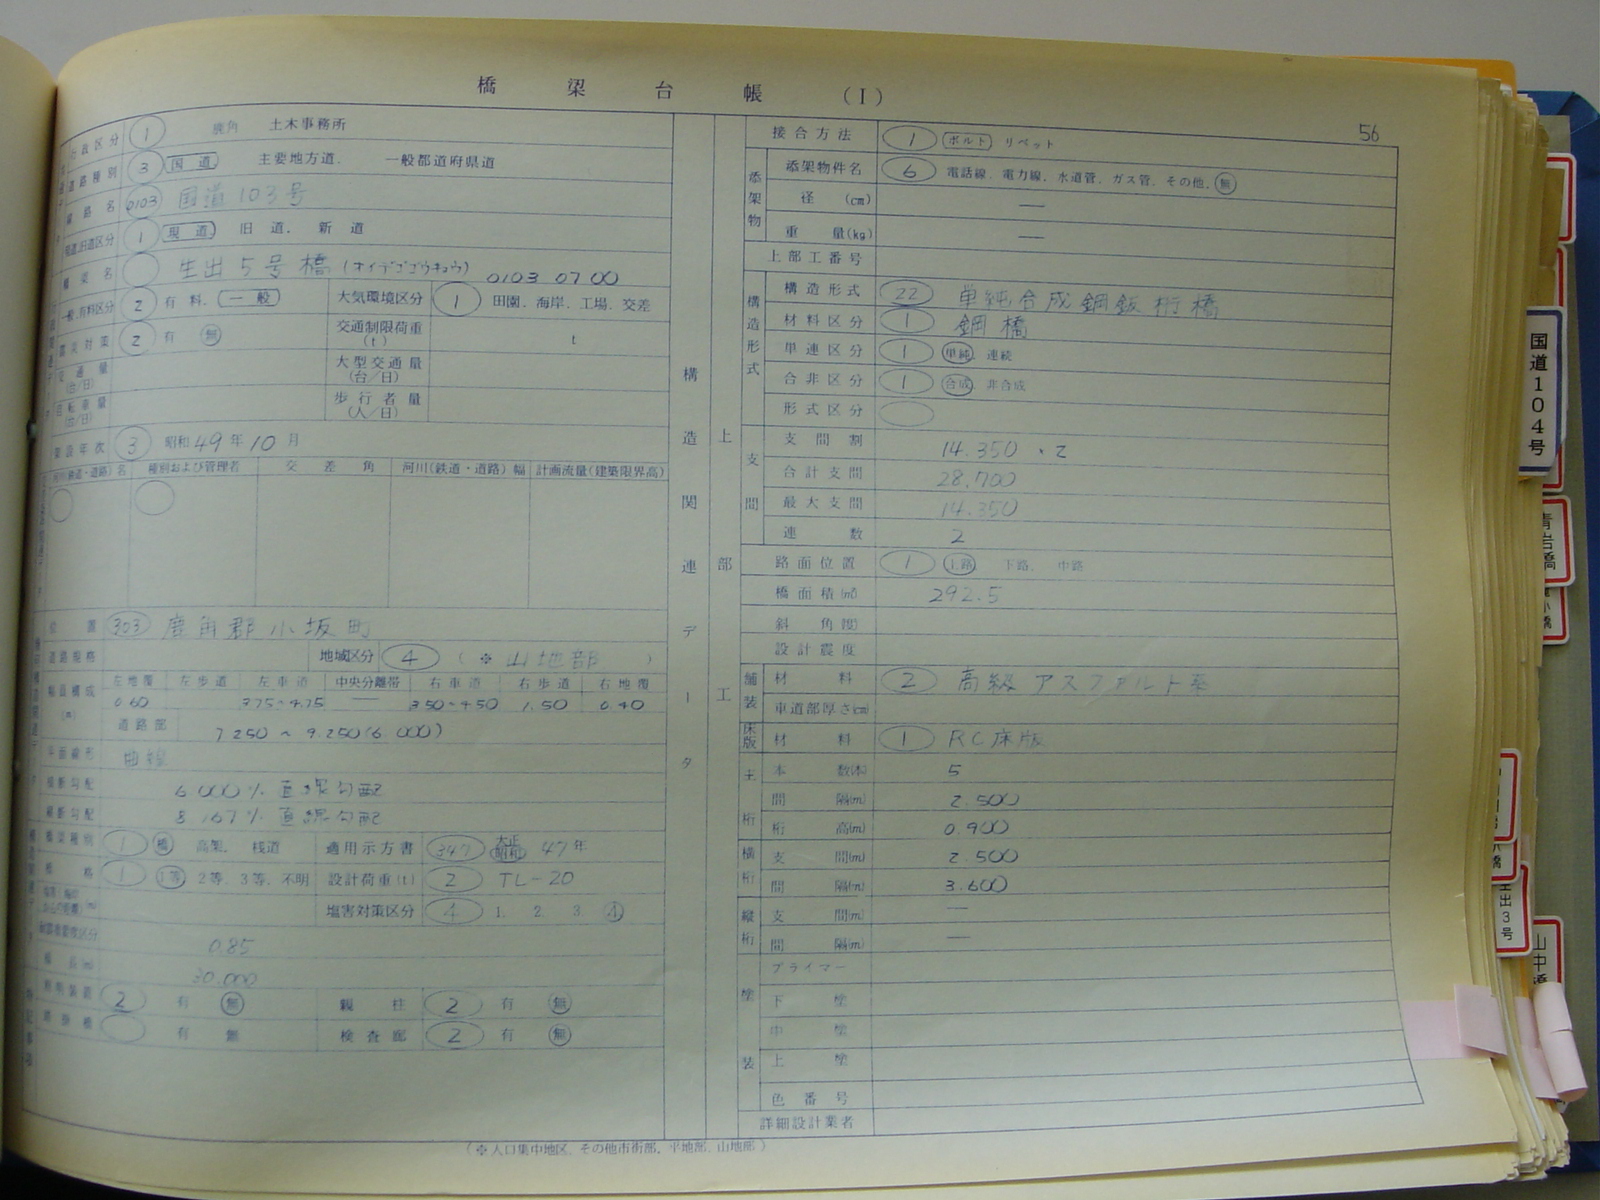 橋梁台帳(I)
56
行政区分 1 鹿角 土木事務所
道路種別 3 国道 主要地方道. 一般都道府県道
路線名 0103 国道103号
現道.旧道区分 1 現道 旧道. 新道
橋梁名 生出5号橋(オイデゴゴウキョウ) 0103 0700
一般.有料区分 2 有料. 一般 大気環境区分 1 田園. 海岸. 工場. 交差
震災対策 2 有 無 交通制限荷重(t) t
交通量(台/日) 大型交通量(台/日)
自転車量(台/日) 歩行者量(人/日)
架設年次 3 昭和49年10月
河川(鉄道・道路)名 種別および管理者 交差角 河川(鉄道・道路)幅 計画流量(建築限界高)
位置 303 鹿角郡小坂町
道路規格 地域区分 4 (※ 山地部 )
幅員構成(m) 左地覆 左歩道 左車道 中央分離帯 右車道 右歩道 右地覆
0.60 3.75~4.75 — 3.50~4.50 1.50 0.40
道路部 7.250 ~ 9.250(6.000)
平面線形 曲線
横断勾配 6.000% 直線勾配
縦断勾配 8.167% 直線勾配
橋梁種別 1 橋 高架. 桟道 適用示方書 347 大正 昭和 47年
橋格 1 1等 2等. 3等. 不明 設計荷重(t) 2 TL-20
塩害対策区分 4 1. 2. 3. 4
0.85
橋長(m) 30.000
照明装置 2 有 無 親柱 2 有 無
添架橋 有 無 検査廊 2 有 無
特記事項
構造関連データ
上部工
接合方法 1 ボルト リベット
添架物 添架物件名 6 電話線. 電力線. 水道管. ガス管. その他. 無
径(cm) —
重量(kg) —
上部工番号
構造形式 構造形式 22 単純合成鋼鈑桁橋
材料区分 1 鋼橋
単連区分 1 単純 連続
合非区分 1 合成 非合成
形式区分
支間 支間割 14.350 ・2
合計支間 28.700
最大支間 14.350
連数 2
路面位置 1 上路 下路. 中路
橋面積(㎡) 292.5
斜角(度)
設計震度
舗装 材料 2 高級アスファルト系
車道部厚さ(cm)
床版 材料 1 RC床版
主桁 本数(本) 5
間隔(m) 2.500
桁高(m) 0.900
横桁 支間(m) 2.500
間隔(m) 3.600
縦桁 支間(m) —
間隔(m) —
塗装 プライマー
下塗
中塗
上塗
色番号
詳細設計業者
(※人口集中地区. その他市街部. 平地部. 山地部)
国道104号
青岩橋
生出3号
山中橋